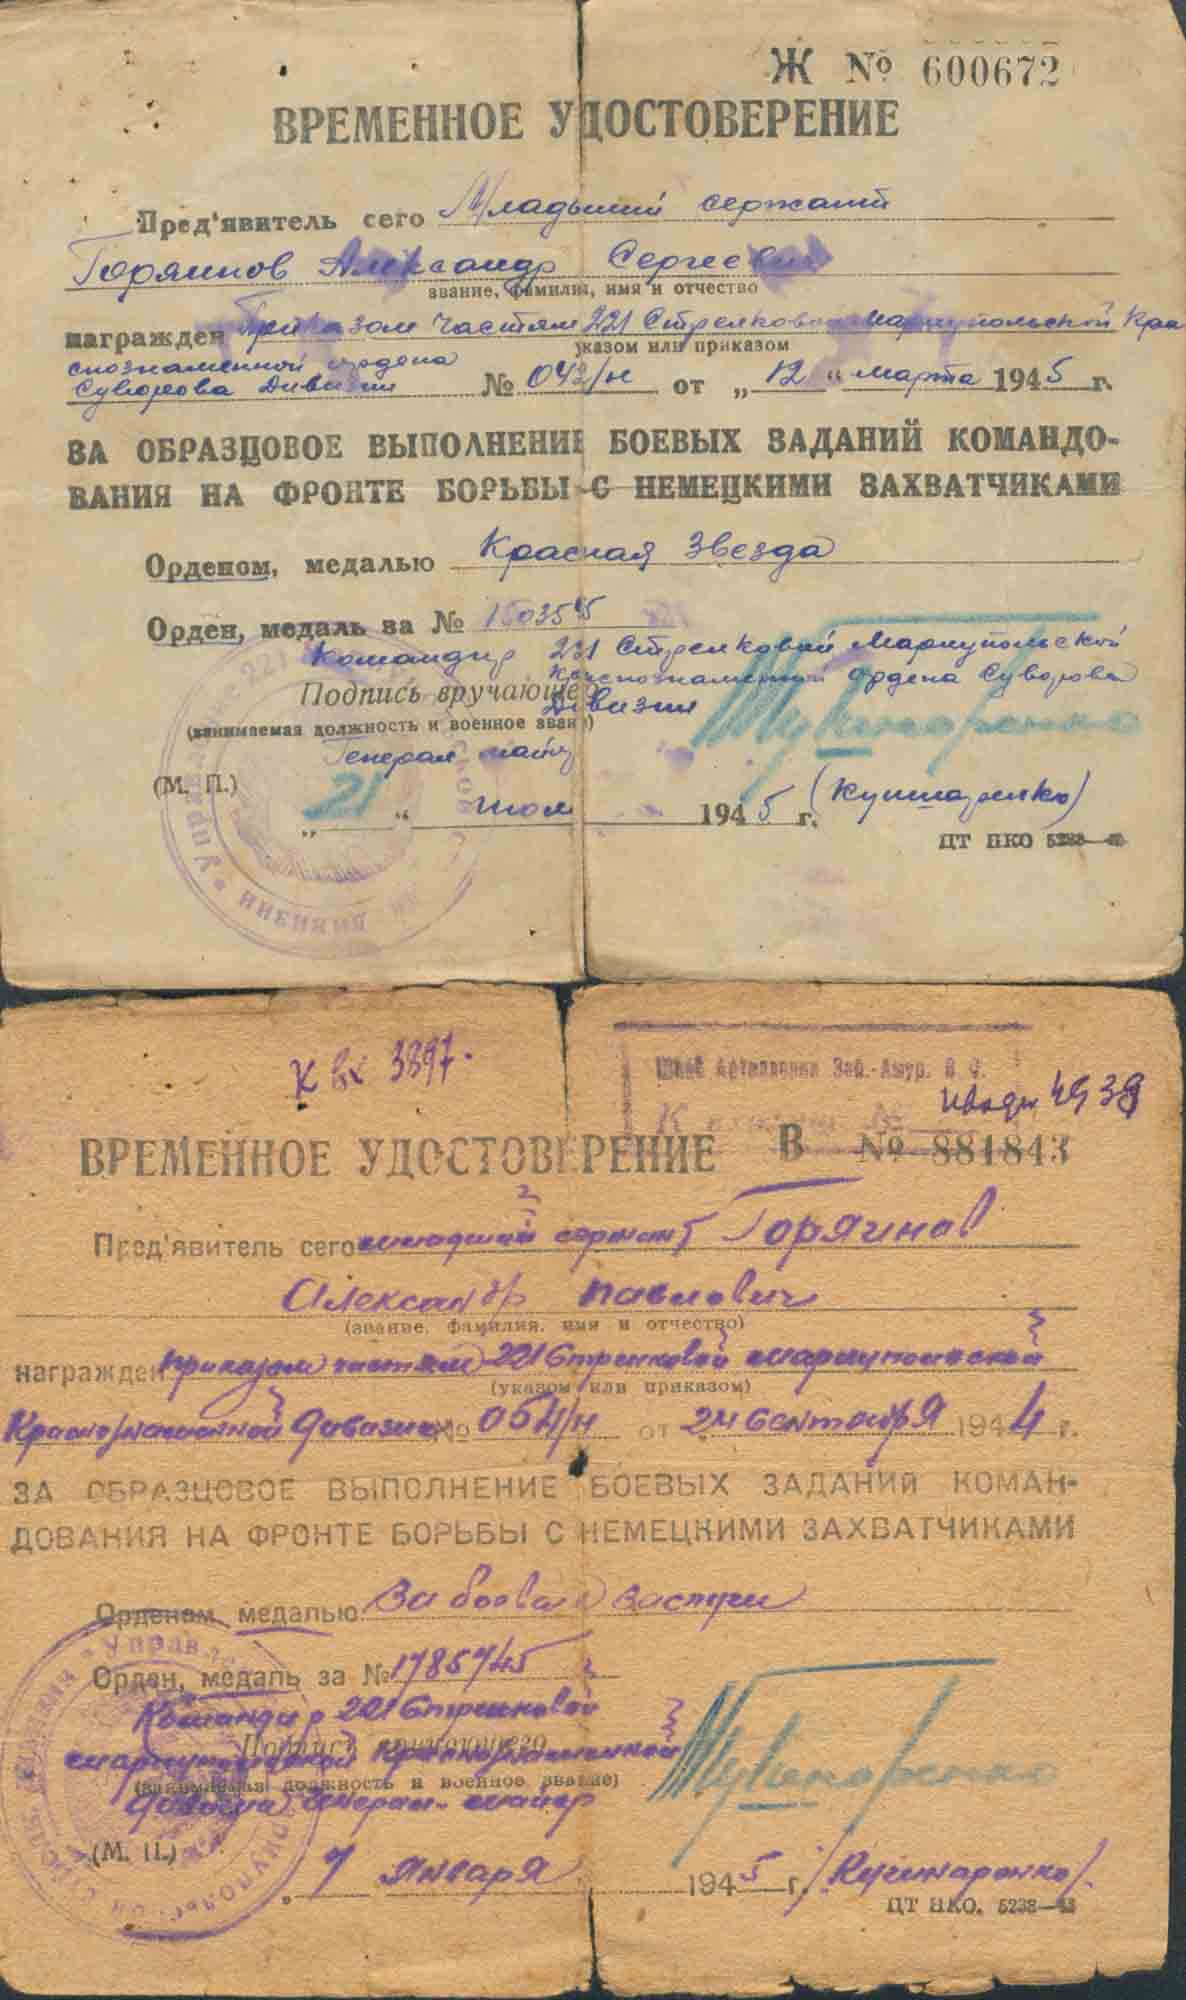 Ж № 600672
ВРЕМЕННОЕ УДОСТОВЕРЕНИЕ
Пред'явитель сего Младший сержант
Горяинов Александр Сергеевич
звание, фамилия, имя и отчество
награжден Приказом частям 221 Стрелковой Мариупольской Кра
указом или приказом
снознаменной ордена
Суворова Дивизии № 042/н от „12“ марта 1945 г.
ЗА ОБРАЗЦОВОЕ ВЫПОЛНЕНИЕ БОЕВЫХ ЗАДАНИЙ КОМАНДО-
ВАНИЯ НА ФРОНТЕ БОРЬБЫ С НЕМЕЦКИМИ ЗАХВАТЧИКАМИ
Орденом, медалью Красная Звезда
Орден, медаль за №
Командир 221 Стрелковой Мариупольской
Краснознаменной ордена Суворова
Подпись вручающего Дивизии
(занимаемая должность и военное звание)
Генерал майор
(М. П.)
„21“ 1945 г. (Кушнаренко)
ЦТ НКО
К вх 3897.
Штаб Артиллерии Заб.-Амур. В. О.
4939
ВРЕМЕННОЕ УДОСТОВЕРЕНИЕ В № 881843
Пред'явитель сего младший сержант Горяинов
Александр Павлович
(звание, фамилия, имя и отчество)
награжден приказом частям 221 Стрелковой Мариупольской
(указом или приказом)
Краснознаменной Дивизии № 054/н от 24 Сентября 1944 г.
ЗА ОБРАЗЦОВОЕ ВЫПОЛНЕНИЕ БОЕВЫХ ЗАДАНИЙ КОМАН-
ДОВАНИЯ НА ФРОНТЕ БОРЬБЫ С НЕМЕЦКИМИ ЗАХВАТЧИКАМИ
Орденом, медалью За боевые заслуги
Орден, медаль за № 1785745
Командир 221 Стрелковой
Подпись вручающего
Мариупольской Краснознаменной
(занимаемая должность и военное звание)
Дивизии Генерал-майор
(М. П.)
„7 Января 1945 г. /Кушнаренко/.
ЦТ НКО. 5238—43